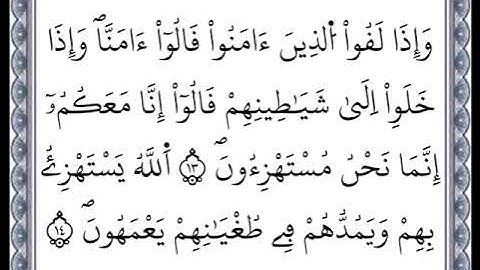 وَإِذَا لَقُواْ اُ۬لذِينَ ءَامَنُواْ قَالُوٓاْ ءَامَنَّاۖ وَإِذَا
خَلَوِاْ اِلَىٰ شَيَٰطِينِهِمْ قَالُوٓاْ إِنَّا مَعَكُمُۥٓ
إِنَّمَا نَحْنُ مُسْتَهْزِءُونَۖ ۝١٣ اَ۬للَّهُ يَسْتَهْزِئُ
بِهِمْ وَيَمُدُّهُمْ فِے طُغْيَٰنِهِمْ يَعْمَهُونَۖ ۝١٤